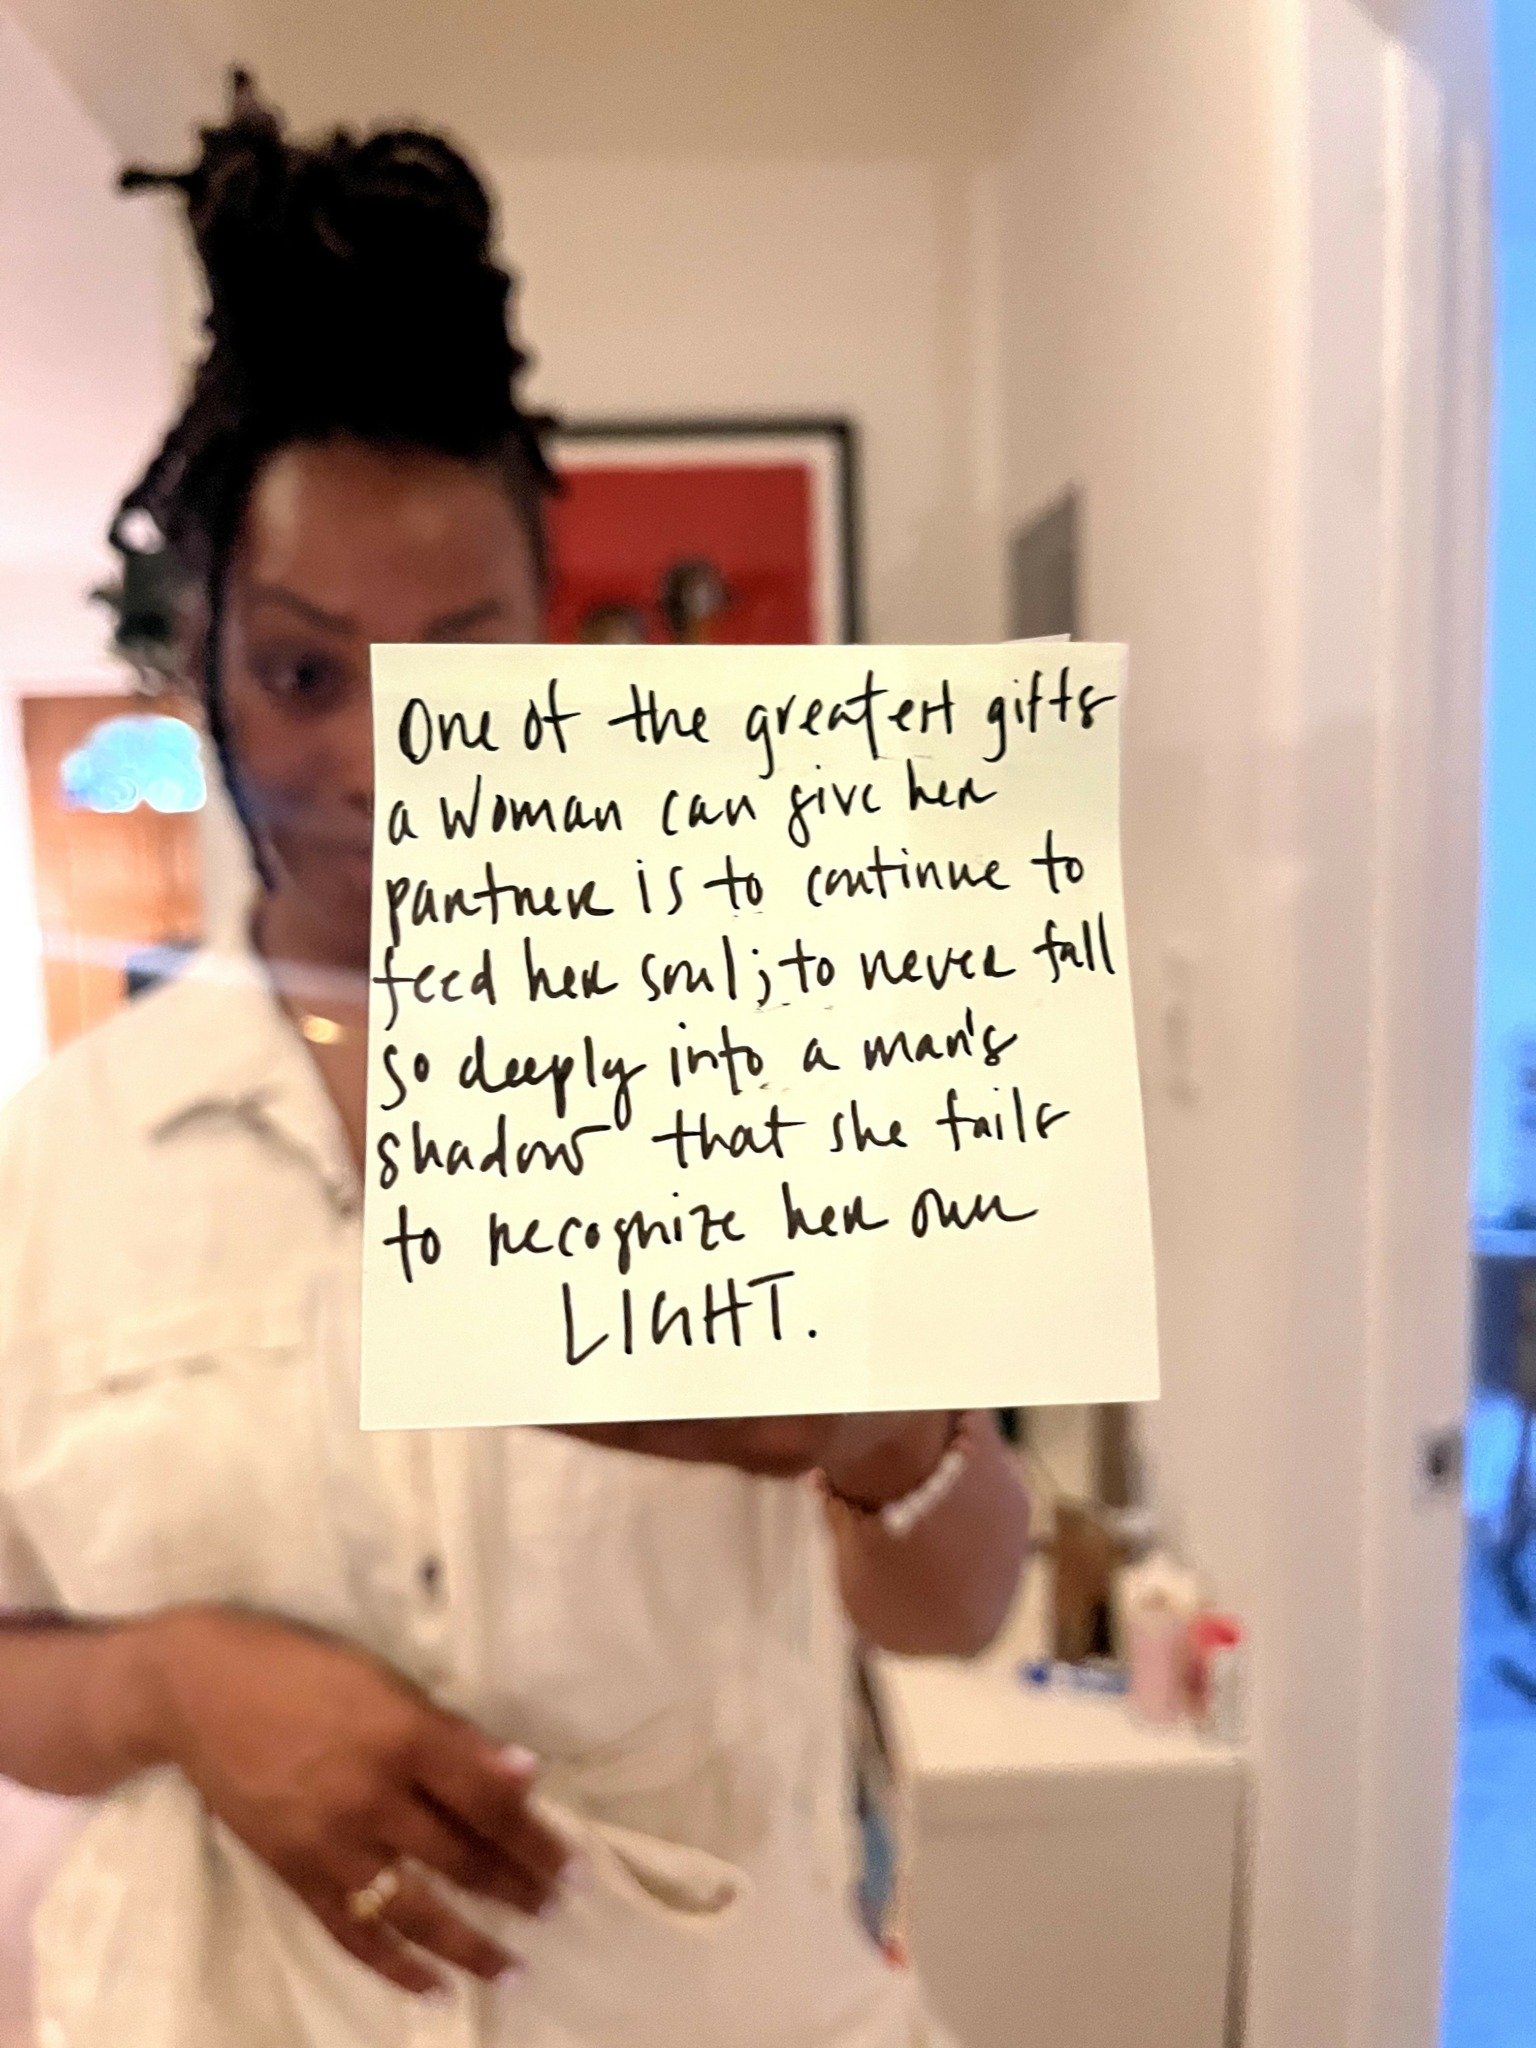 One of the greatest gifts
a woman can give her
partner is to continue to
feed her soul; to never fall
so deeply into a man's
shadow that she fails
to recognize her own
LIGHT.